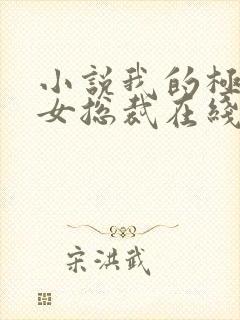 小説我的極
女総裁在綫
宋洪武